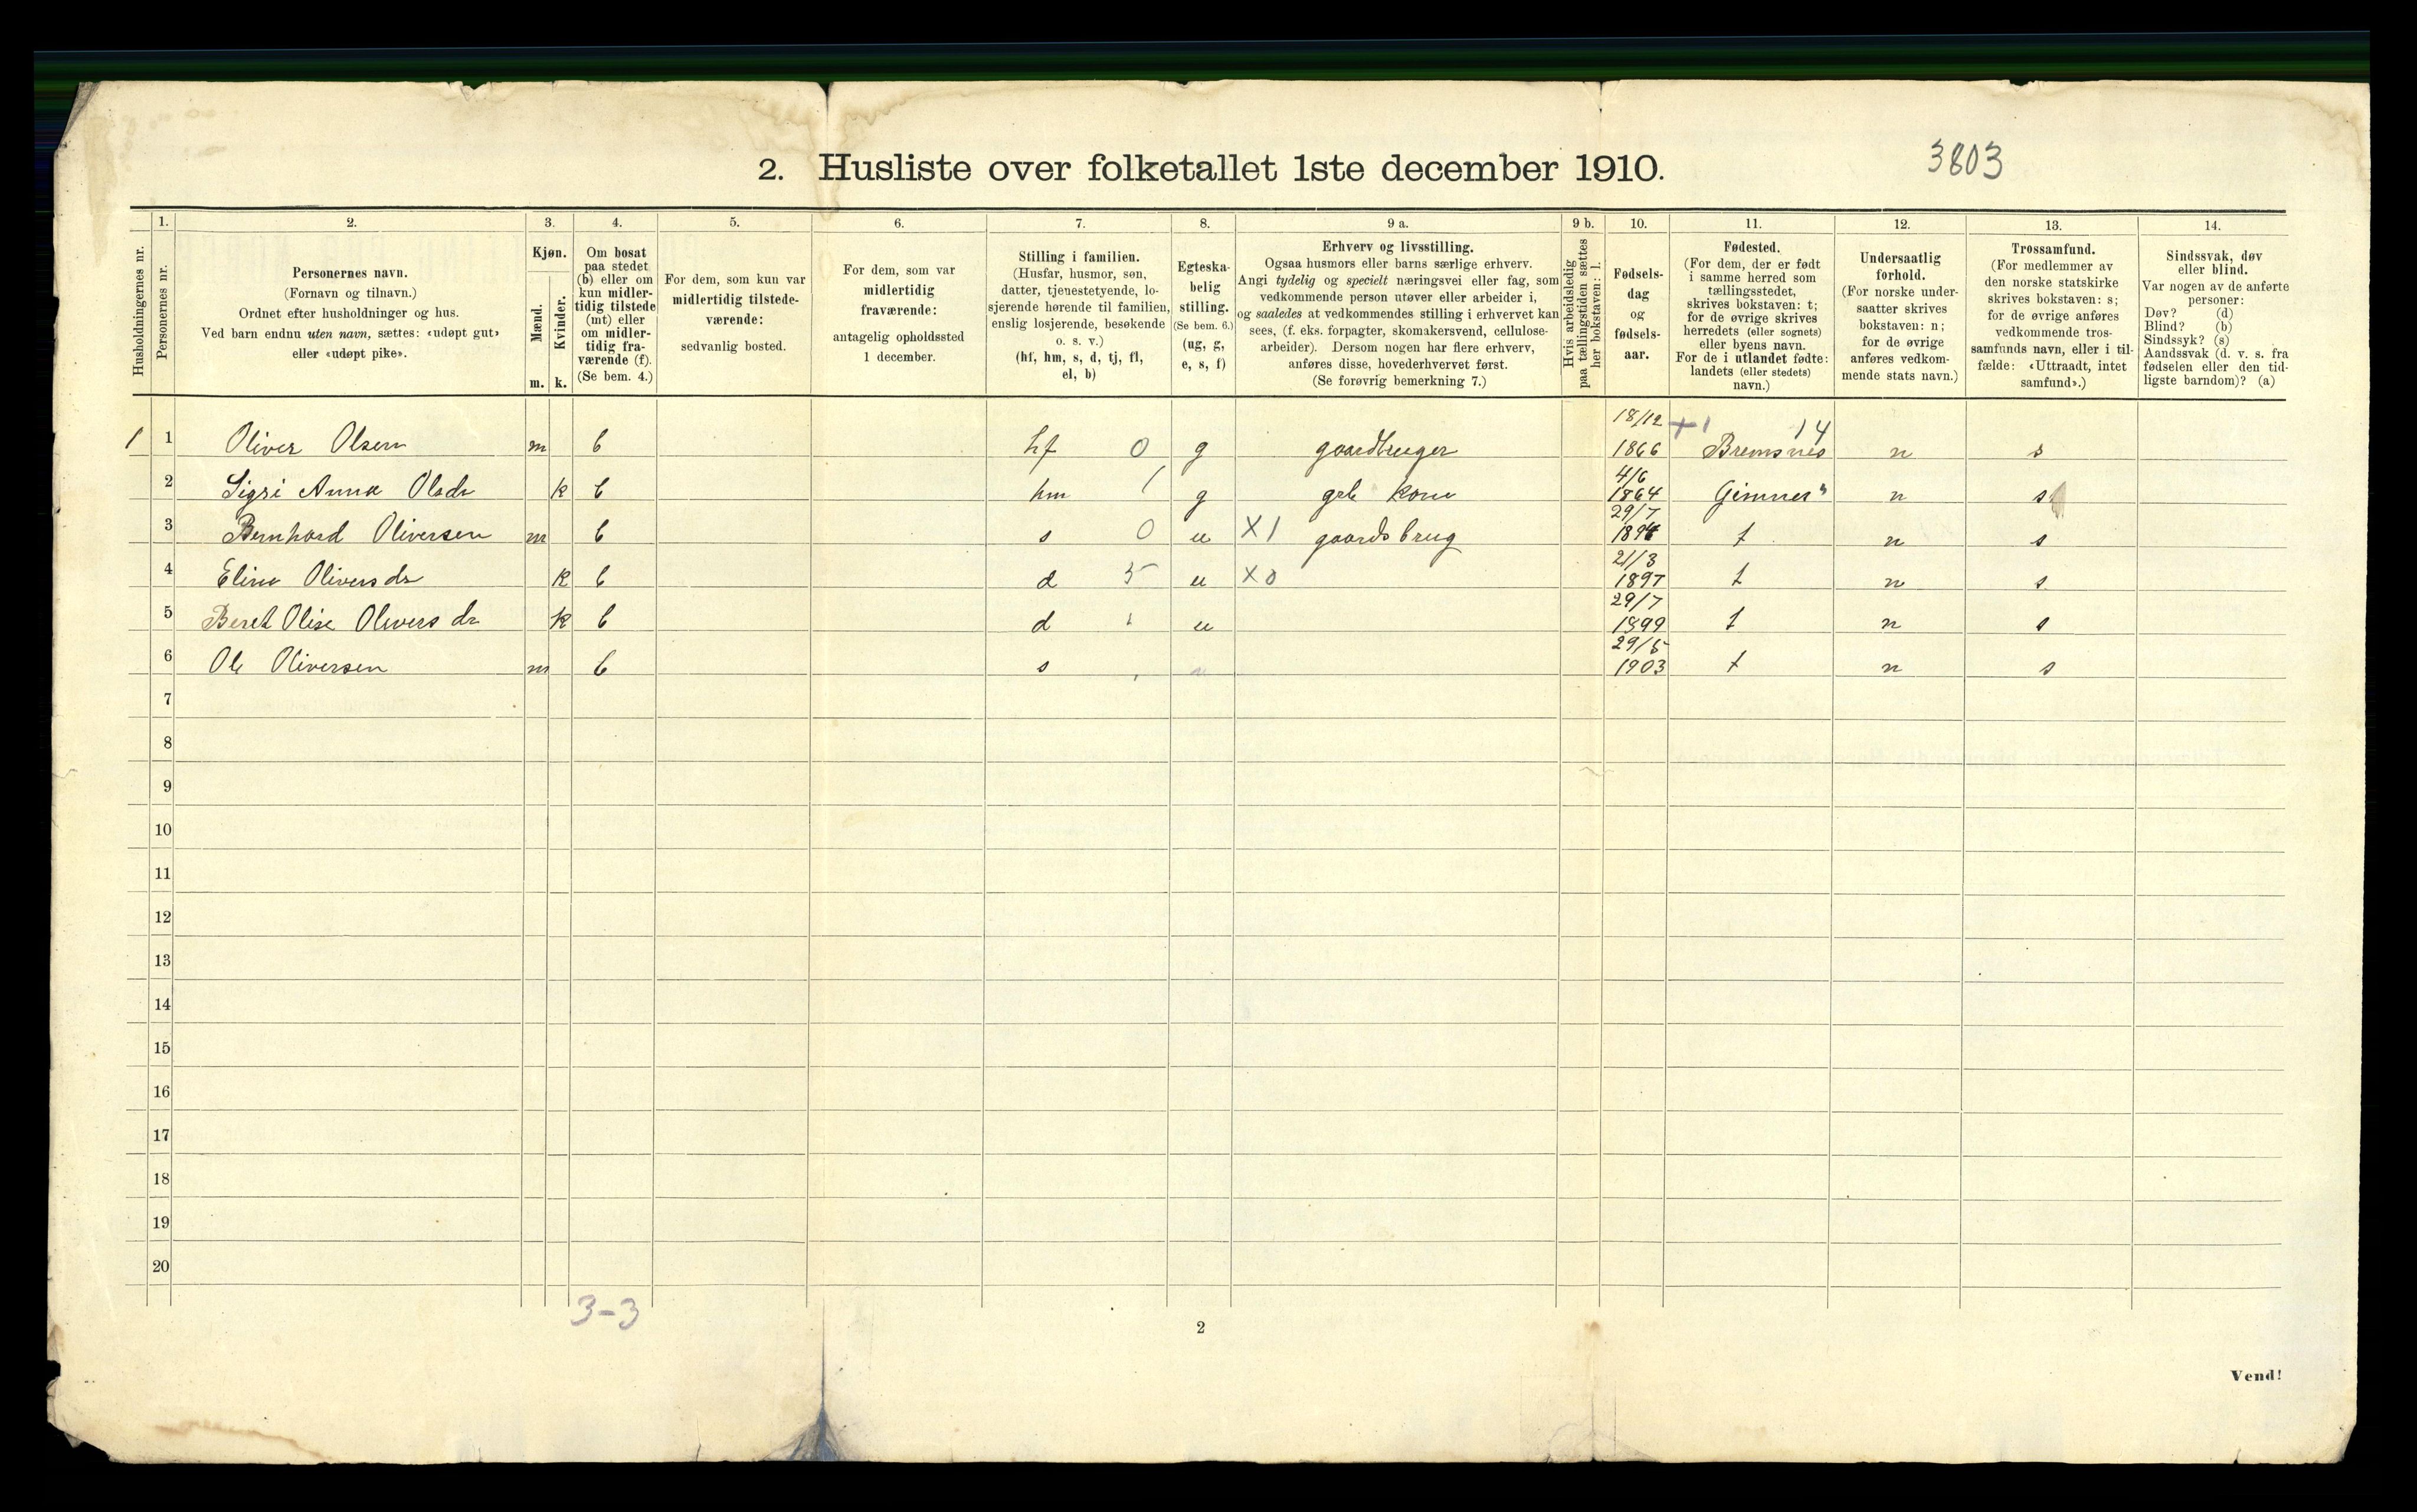 2. Husliste over folketallet 1ste december 1910.
3803
Husholdningernes nr.
1.
Personernes nr.
2.
Personernes navn.
(Fornavn og tilnavn.)
Ordnet efter husholdninger og hus.
Ved barn endnu uten navn, sættes: «udøpt gut»
eller «udøpt pike».
3.
Kjøn.
Mænd.
Kvinder.
m. k.
4.
Om bosat
paa stedet
(b) eller om
kun midler-
tidig tilstede
(mt) eller
om midler-
tidig fra-
værende (f).
(Se bem. 4.)
5.
For dem, som kun var
midlertidig tilstede-
værende:
sedvanlig bosted.
6.
For dem, som var
midlertidig
fraværende:
antagelig opholdssted
1 december.
7.
Stilling i familien.
(Husfar, husmor, søn,
datter, tjenestetyende, lo-
sjerende hørende til familien,
enslig losjerende, besøkende
o. s. v.)
(hf, hm, s, d, tj, fl,
el, b)
8.
Egteska-
belig
stilling.
(Se bem. 6.)
(ug, g,
e, s, f)
9 a.
Erhverv og livsstilling.
Ogsaa husmors eller barns særlige erhverv.
Angi tydelig og specielt næringsvei eller fag, som
vedkommende person utøver eller arbeider i,
og saaledes at vedkommendes stilling i erhvervet kan
sees, (f. eks. forpagter, skomakersvend, cellulose-
arbeider). Dersom nogen har flere erhverv,
anføres disse, hovederhvervet først.
(Se forøvrig bemerkning 7.)
9 b.
Hvis arbeidsledig
paa tællingstiden sættes
her bokstaven: l.
10.
Fødsels-
dag
og
fødsels-
aar.
11.
Fødested.
(For dem, der er født
i samme herred som
tællingsstedet,
skrives bokstaven: t;
for de øvrige skrives
herredets (eller sognets)
eller byens navn.
For de i utlandet fødte:
landets (eller stedets)
navn.)
12.
Undersaatlig
forhold.
(For norske under-
saatter skrives
bokstaven: n;
for de øvrige
anføres vedkom-
mende stats navn.)
13.
Trossamfund.
(For medlemmer av
den norske statskirke
skrives bokstaven: s;
for de øvrige anføres
vedkommende tros-
samfunds navn, eller i til-
fælde: «Uttraadt, intet
samfund».)
14.
Sindssvak, døv
eller blind.
Var nogen av de anførte
personer:
Døv? (d)
Blind? (b)
Sindssyk? (s)
Aandssvak (d. v. s. fra
fødselen eller den tid-
ligste barndom)? (a)
18/12 +1 14
1 1 Oliver Olsen m b hf 0 g gaardbruger 1866 Bremsnes n s
4/6
2 Sigri Anna Olsdr k b hm 1 g grb kone 1864 n s
29/7
3 Bernhard Oliversen m b s 0 u X1 gaardsbrug t n s
21/3
4 Oliversdr k b d 5 u X0 1897 t n s
29/7
5 Beret Olise Olivers dr k b d u 1899 t n s
29/5
6 Ole Oliversen m b s 1903 t n s
7
8
9
10
11
12
13
14
15
16
17
18
19
20
3-3
2
Vend!